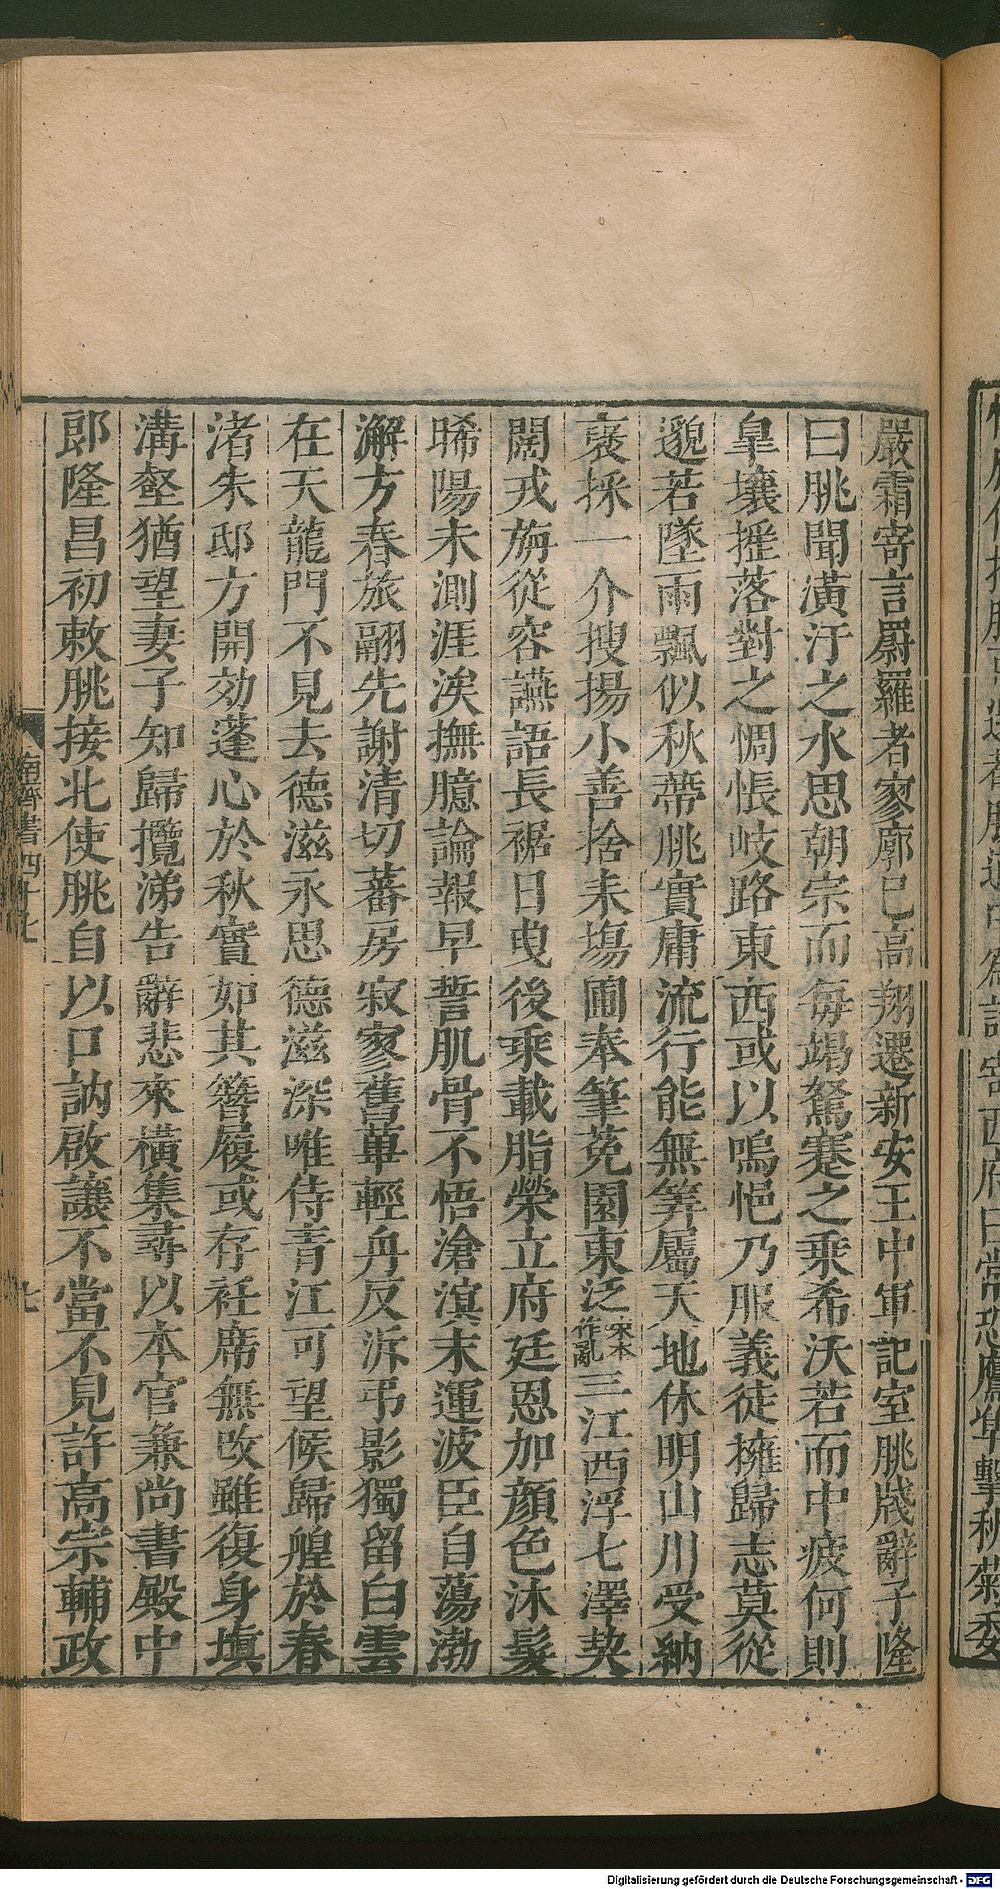 嚴霜寄言罻羅者寥廓已高翔遷新安王中軍記室朓牋辭子隆
曰朓聞潢汙之水思朝宗而每竭駑蹇之乘希沃若而中疲何則
臯壤搖落對之惆悵岐路東西或以嗚悒乃服義徒擁歸志莫從
邈若墜雨飄似秋蔕朓實庸流行能無筭屬天地休明山川受納
襃採一介搜揚小善捨耒塲圃奉筆菟園東泛宋本作亂三江西浮七澤契
闊戎旃從容讌語長裾日曳後乘載脂榮立府廷恩加顔色沐髮
晞陽未測涯涘撫臆論報早誓肌骨不悟滄溟末運波臣自蕩渤
澥方春旅翮先謝清切蕃房寂寥舊蓽輕舟反泝弔影獨留白雲
在天龍門不見去德滋永思德滋深唯待青江可望候歸艎於春
渚朱邸方開効蓬心於秋實如其簪履或存衽席無改雖復身塡
溝壑猶望妻子知歸攬涕告辭悲來橫集尋以本官兼尚書殿中
郎隆昌初敕朓接北使朓自以口訥啟讓不當不見許高宗輔政
南齊書四十七
七
Digitalisierung gefördert durch die Deutsche Forschungsgemeinschaft - DFG